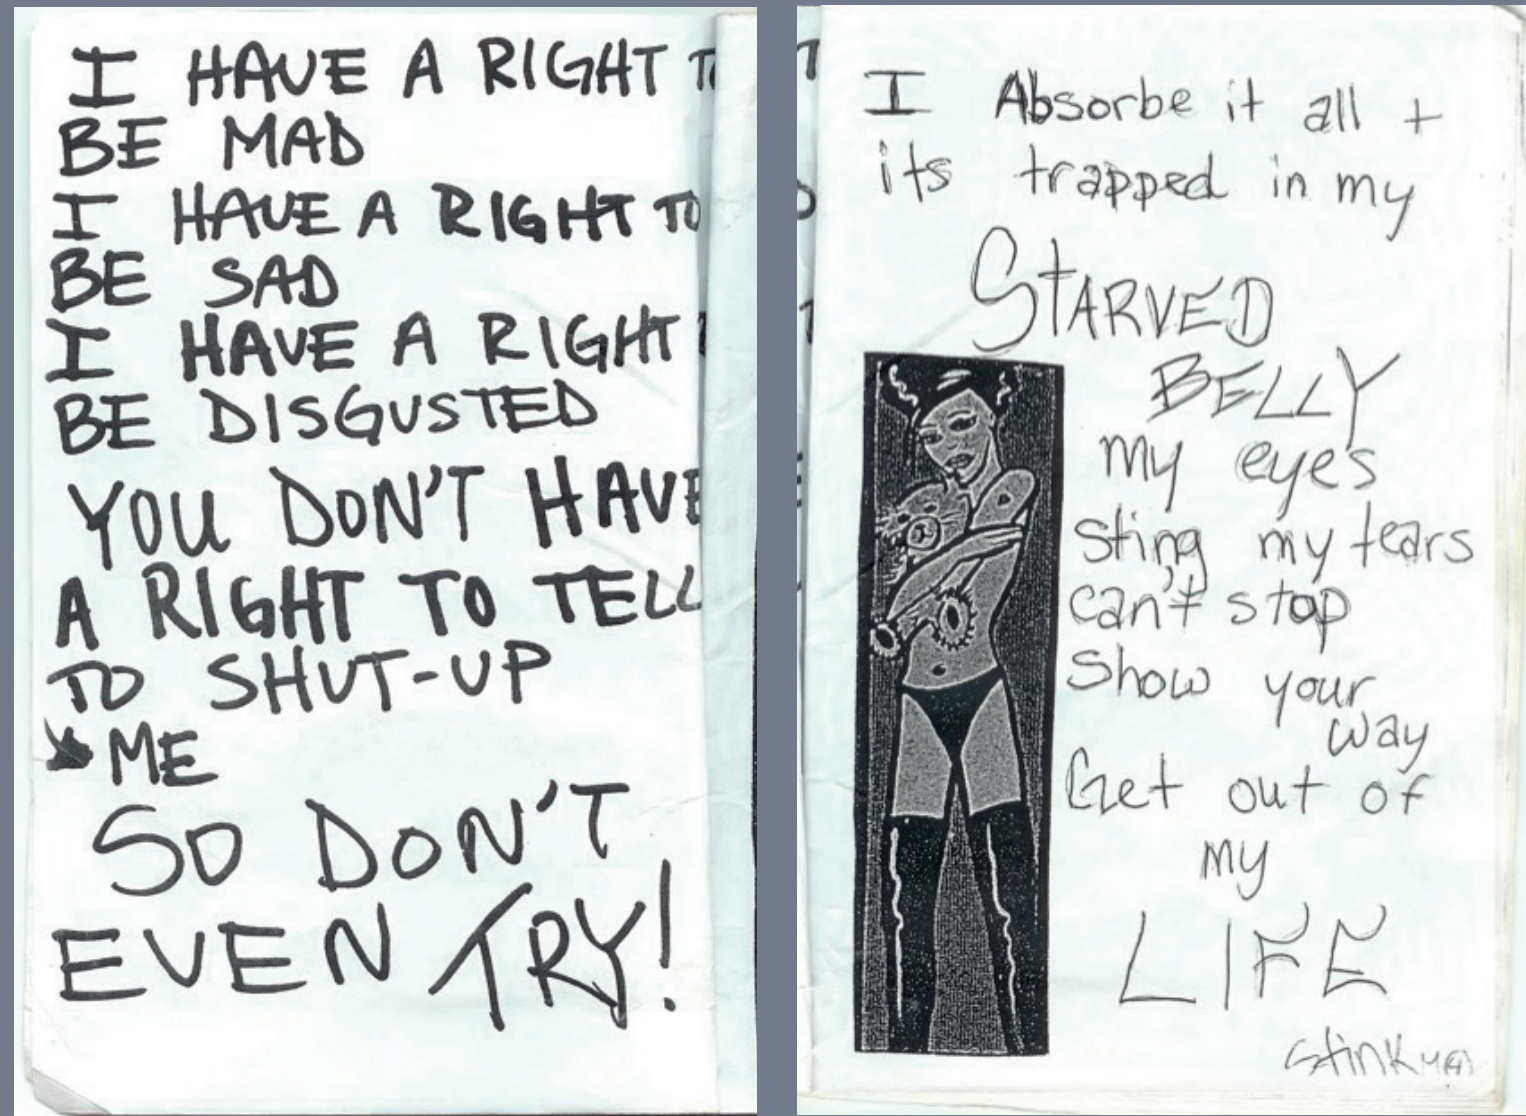 I HAVE A RIGHT TO
BE MAD
I HAVE A RIGHT TO
BE SAD
I HAVE A RIGHT
BE DISGUSTED
YOU DON'T HAVE
A RIGHT TO TELL
TO SHUT-UP
ME
SO DON'T
EVEN TRY!
I Absorbe it all +
its trapped in my
STARVED
BELLY
my eyes
sting my tears
can't stop
Show your
way
Get out of
my
LIFE
Stink